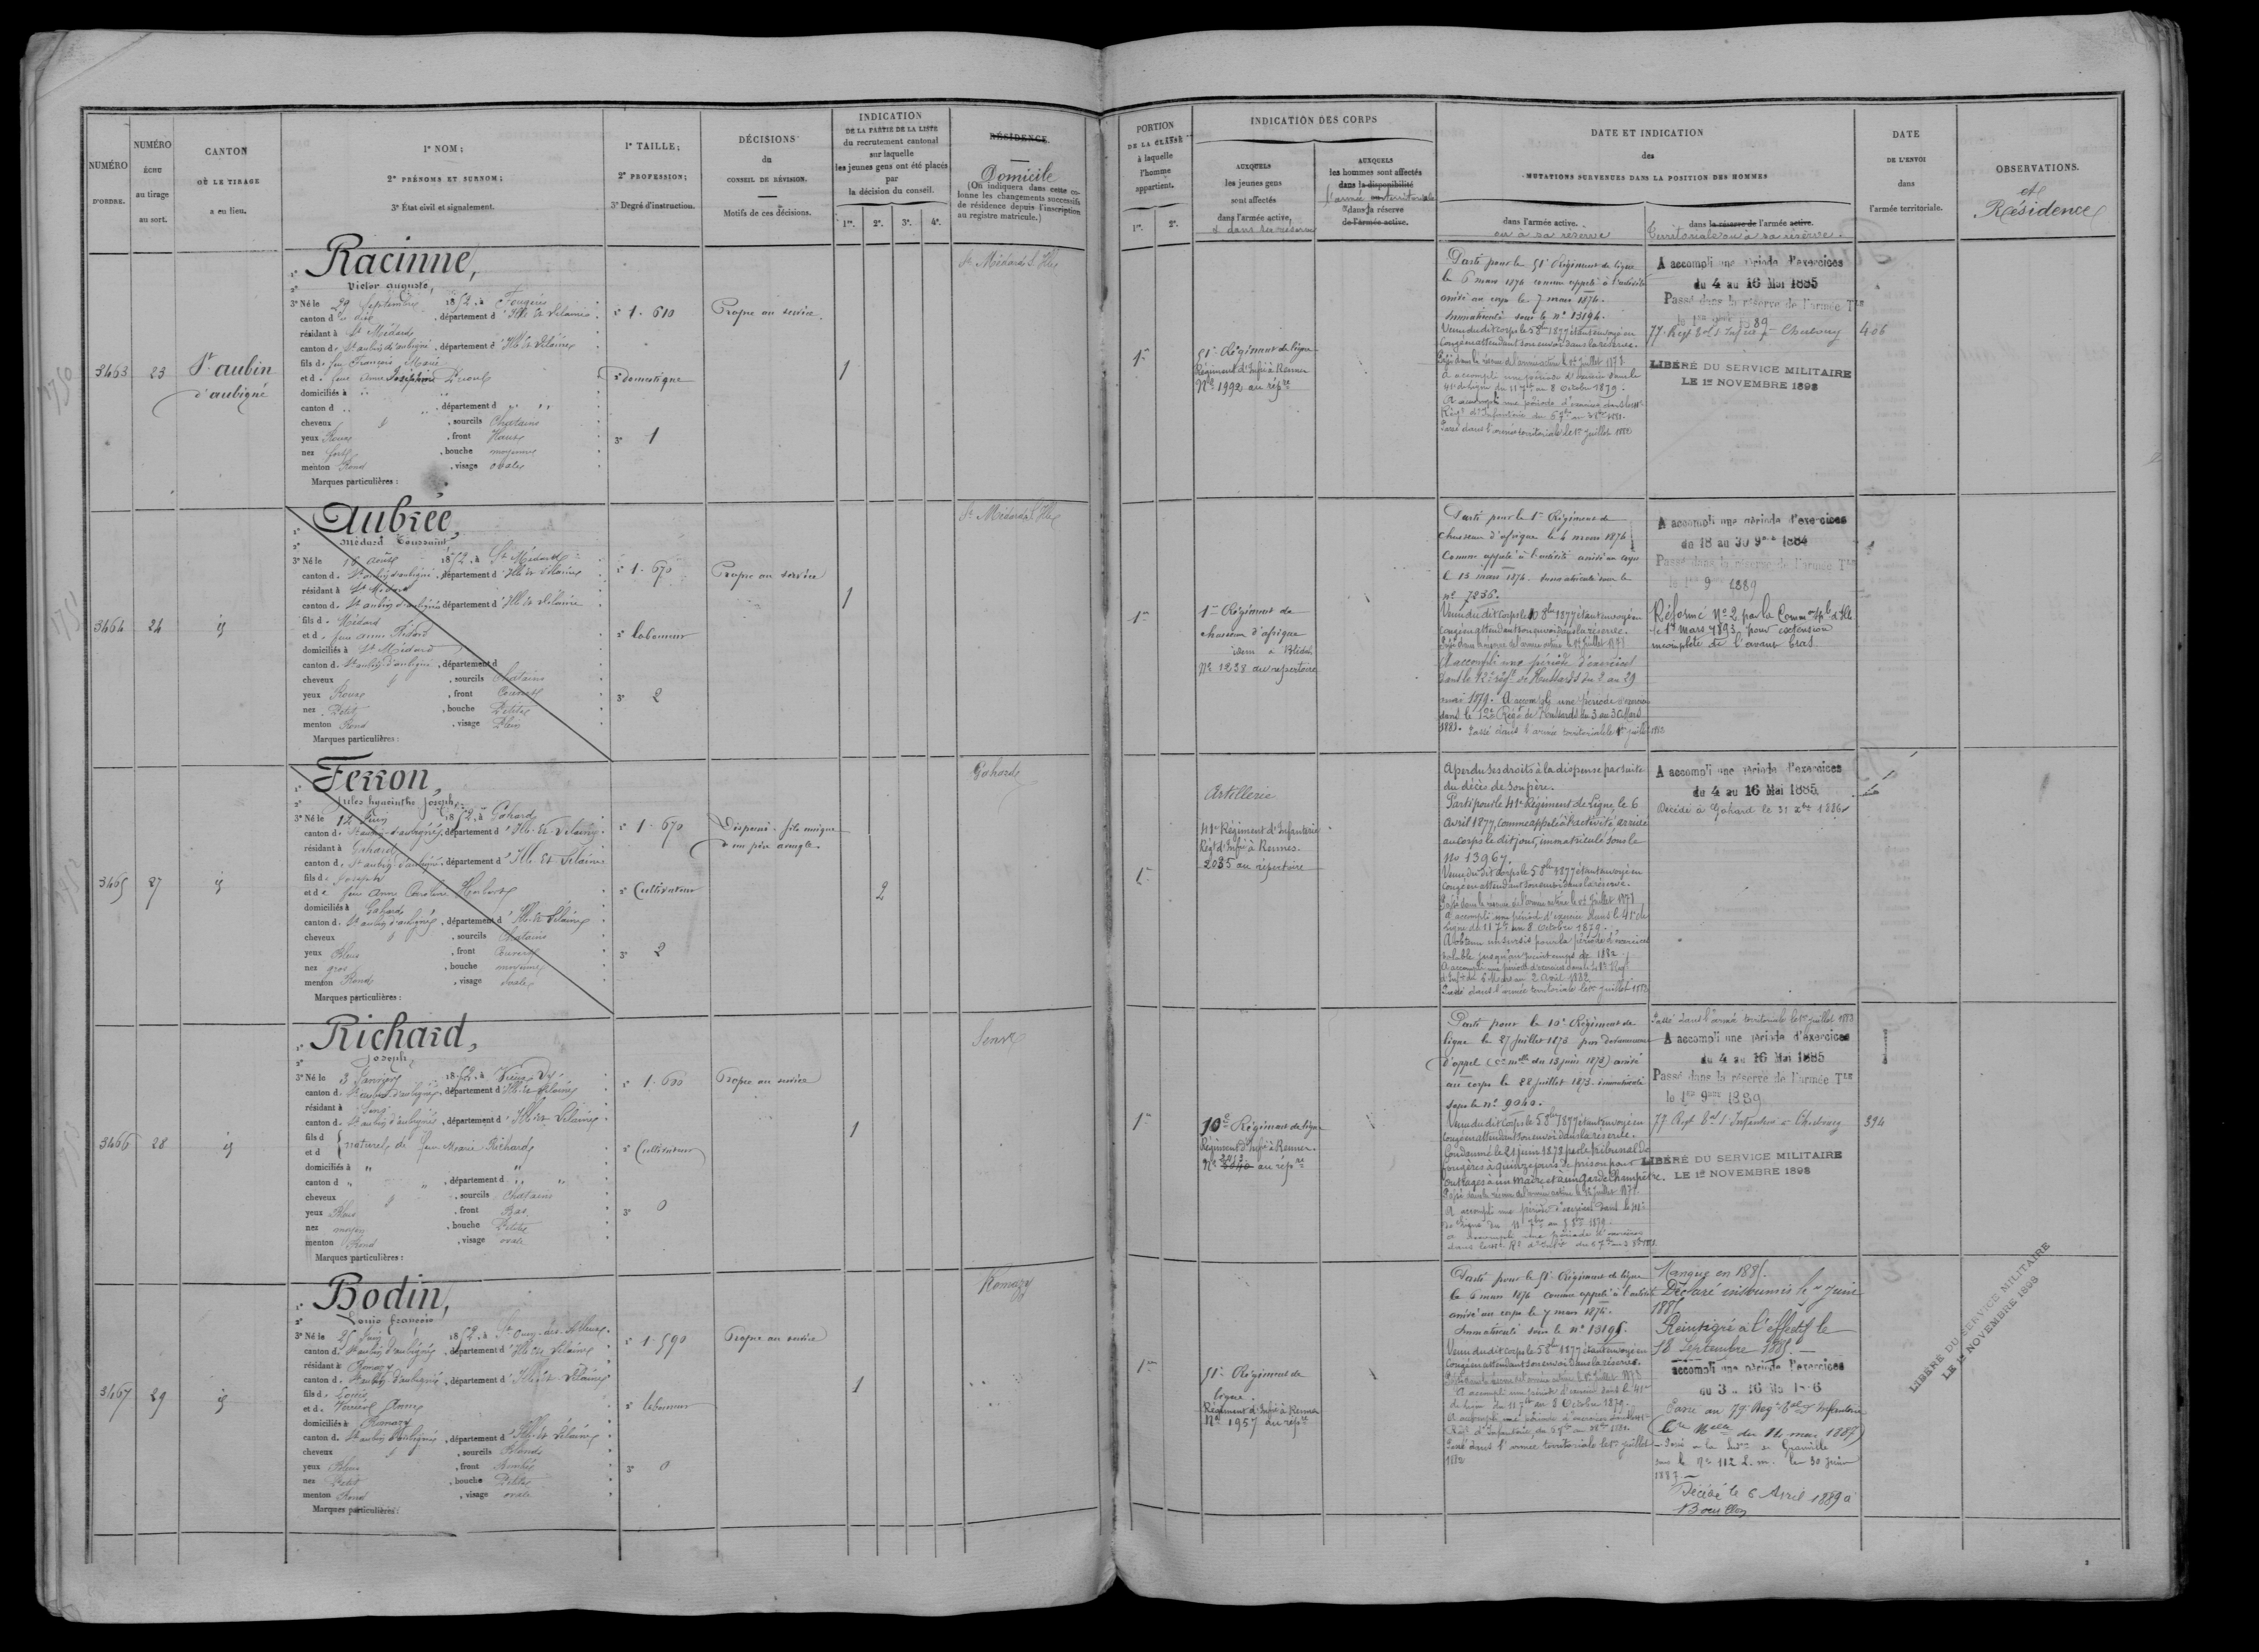 NUMÉRO
D'ORDRE.
NUMÉRO
échu
au tirage
au sort.
CANTON
OÙ LE TIRAGE
a eu lieu.
1° NOM;
2° PRÉNOMS ET SURNOM;
3° État civil et signalement.
1° TAILLE;
2° PROFESSION;
3° Degré d'instruction.
DÉCISIONS
du
CONSEIL DE RÉVISION.
Motifs de ces décisions.
INDICATION
DE LA PARTIE DE LA LISTE
du recrutement cantonal
sur laquelle
les jeunes gens ont été placés
par
la décision du conseil.
1re. 2e. 3e. 4e.
RÉSIDENCE
Domicile
(On indiquera dans cette co-
lonne les changements successifs
de résidence depuis l'inscription
au registre matricule.)
PORTION
DE LA CLASSE
à laquelle
l'homme
appartient.
1re. 2e.
INDICATION DES CORPS
AUXQUELS
les jeunes gens
sont affectés
dans l'armée active,
et dans sa réserve
AUXQUELS
les hommes sont affectés
dans la disponibilité
l'armée territoriale
dans la réserve
de l'armée active.
DATE ET INDICATION
des
MUTATIONS SURVENUES DANS LA POSITION DES HOMMES
dans l'armée active.
ou à sa réserve
dans la réserve de l'armée active.
Territoriale ou à sa réserve.
DATE
DE L'ENVOI
dans
l'armée territoriale.
OBSERVATIONS.
et
Résidence
3463
23
St aubin
d'aubigné
1° Racinne,
2° Victor auguste,
3° Né le 29 Septembre 1852, à Fougères
canton d dit, département d'Ille et Vilaine
résidant à St Médard
canton de St aubin d'aubigné, département d'Ille et Vilaine
fils de feu François Marie
et de feue Anne Joséphine
domiciliés à
canton d , département d
cheveux , sourcils Chatains
yeux Roux , front Haut
nez fort , bouche moyenne
menton Rond , visage ovale
Marques particulières :
1° 1. 610
2° Domestique
3° 1
Propre au service
1
St Médard s. Ille
1re
51e Régiment de ligne
Régiment d'Infie à Rennes
No 1992 au répre
Parti pour le 51e Régiment de ligne
le 6 mars 1874 comme appelé à l'activité
arrivé au corps le 7 mars 1874.
Immatriculé sous le no 13194.
Venu du dit corps le 5 8bre 1877 étant envoyé en
congé en attendant son envoi dans la réserve.
Passé dans la réserve de l'armée active le 1er Juillet 1878
A accompli une période d'exercices dans le
41e de ligne du 11 7bre au 8 Octobre 1879.
A accompli une période d'exercices dans le
Régt d'Infanterie du
Passé dans l'armée territoriale le 1er Juillet 1882
A accompli une période d'exercices
du 4 au 16 Mai 1885
Passé dans la réserve de l'armée Tle
le 1er 9bre 1889
77. Regt Tal d'Infie à Cherbourg
406
LIBÉRÉ DU SERVICE MILITAIRE
LE 1er NOVEMBRE 1898
3464
24
id
1° Aubrée,
2° Médard Toussaint
3° Né le 15 août 1852, à St Médard
canton de St aubin d'aubigné, département d'Ille et Vilaine
résidant à St Médard
canton de St aubin d'aubigné département d'Ille et Vilaine
fils de Médard
et de feue anne
domiciliés à St Médard
canton de St aubin d'aubigné, département d
cheveux , sourcils Chatains
yeux Roux , front Couvert
nez Petit , bouche Petite
menton Rond , visage Plein
Marques particulières :
1° 1. 670
2° laboureur
3° 2
Propre au service
1
St Médard s. Ille
1re
1er Régiment de
chasseurs d'afrique
idem à Blidah
No 1238 au répertoire
Parti pour le 1er Régiment de
chasseurs d'afrique le 6 mars 1874
Comme appelé à l'activité arrivé au corps
le 13 mars 1874. Immatriculé sous le
no 7236.
Venu du dit corps le 10 8bre 1877 étant envoyé en
congé en attendant son envoi dans la réserve.
Passé dans la réserve de l'armée active le 1er Juillet 1878
A accompli une période d'exercices
dans le 12e régt de Hussards du 2 au 29
mai 1879. A accompli une période d'exercices
dans le 12e Régt de Hussards du 3 au 30 Mars
1881. Passé dans l'armée territoriale le 1er juillet 1882
A accompli une période d'exercices
du 18 au 30 9bre 1884
Passé dans la réserve de l'armée Tle
le 1er 9bre 1889
Réformé No 2 par la Comm on Sple d'Ille
le 17 mars 1893 pour extension
incomplète de l'avant bras
3465
27
id
1° Ferron,
2° Jules hyacinthe Joseph,
3° Né le 14 Juin 1852, à Gahard
canton de St aubin d'aubigné, département d'Ille et Vilaine
résidant à Gahard
canton de St aubin d'aubigné, département d'Ille et Vilaine
fils de Joseph
et de feue Anne Caroline
domiciliés à Gahard
canton de St aubin d'aubigné, département d'Ille et Vilaine
cheveux , sourcils Chatains
yeux Bleus , front Couvert
nez gros , bouche moyenne
menton Rond , visage ovale
Marques particulières :
1° 1. 670
2° Cultivateur
3° 2
Dispensé fils unique
d'un père aveugle.
2
Gahard
1re
Artillerie
41e Régiment d'Infanterie
Régt d'Infie à Rennes.
2035 au répertoire
A perdu ses droits à la dispense par suite
du décès de son père.
Parti pour le 41e Régiment de Ligne, le 6
Avril 1877, comme appelé à l'activité, arrivé
au corps le dit jour, immatriculé sous le
No 13967.
Venu du dit corps le 5 8bre 1877 étant envoyé en
congé en attendant son envoi dans la réserve.
Passé dans la réserve de l'armée active le 1er Juillet 1878
A accompli une période d'exercices dans le 41e de
ligne du 11 7bre au 8 Octobre 1879.
A obtenu un sursis pour la période d'exercices
valable jusqu'au printemps de 1882.
A accompli une période d'exercices dans le
d'Infie du 6 Mars au 2 Avril 1882
Passé dans l'armée territoriale le 1er juillet 1882
A accompli une période d'exercices
du 4 au 16 Mai 1885.
Décédé à Gahard le 31 Xbre 1886
3466
28
id
1° Richard,
2° Joseph,
3° Né le 3 Janvier 1852, à Vieux-Vy
canton de St aubin d'aubigné, département d'Ille et Vilaine
résidant à Sens
canton de St aubin d'aubigné, département d'Ille et Vilaine
fils d
et d
naturel de feue Marie Richard
domiciliés à
canton d , département d
cheveux , sourcils Chatains
yeux Bleus , front Bas
nez moyen , bouche Petite
menton Rond , visage ovale
Marques particulières :
1° 1. 600
2° Cultivateur
3° 0
Propre au service
1
Sens
1re
10e Régiment de ligne
Régiment d'Infie à Rennes.
No au répre
Parti pour le 10e Régiment de
ligne le 27 juillet 1873 par devancement
d'appel (Cre mlle du 13 juin 1873) arrivé
au corps le 28 juillet 1873. immatriculé
sous le no 9040.
Venu du dit corps le 5 8bre 1877 étant envoyé en
congé en attendant son envoi dans la réserve.
Condamné le 21 juin 1878 par le tribunal de
Fougères à quinze jours de prison pour
outrages à un maire et à un garde champêtre.
Passé dans la réserve de l'armée active le 1er Juillet 1878
A accompli une période d'exercices dans le 41e
de ligne du 11 7bre au 8 8bre 1879.
A accompli une période d'exercices
Passé dans l'armée territoriale le 1er juillet 1883
A accompli une période d'exercices
du 4 au 16 Mai 1885
Passé dans la réserve de l'armée Tle
le 1er 9bre 1889
77 Regt Tal d'Infanterie à Cherbourg
394
LIBÉRÉ DU SERVICE MILITAIRE
LE 1er NOVEMBRE 1898
3467
29
id
1° Bodin,
2° Louis françois
3° Né le 25 Juin 1852, à St Ouen-des-Alleux
canton de St aubin d'aubigné, département d'Ille et Vilaine
résidant à Romazy
canton de St aubin d'aubigné, département d'Ille et Vilaine
fils de Louis
et de Anne
domiciliés à Romazy
canton de St aubin d'aubigné, département d'Ille et Vilaine
cheveux , sourcils Blonds
yeux Bleus , front
nez Petit , bouche Petite
menton Rond , visage ovale
Marques particulières :
1° 1. 590
2° laboureur
3° 0
Propre au service
1
Romazy
1re
51e Régiment de
ligne.
Régiment d'Infie à Rennes
No 1957 au répre
Parti pour le 51e Régiment de ligne
le 6 mars 1874 comme appelé à l'activité
arrivé au corps le 7 mars 1874.
Immatriculé sous le no 13195.
Venu du dit corps le 5 8bre 1877 étant envoyé en
congé en attendant son envoi dans la réserve.
Passé dans la réserve de l'armée active le 1er Juillet 1878
A accompli une période d'exercices dans le 41e
de ligne du 11 7bre au 8 Octobre 1879.
A accompli une période d'exercices
Passé dans l'armée territoriale le 1er juillet
1882
Manque en 1885.
Déclaré insoumis le Juin
1885
Réintégré à l'effectif le
18 Septembre 1885.
accompli une période d'exercices
du 3 au 16 Mai 1886
Passé au 79. Regt Tal d'Infanterie
(Cre Melle du 12 mars 1887)
de Granville
sous le No 112 L. m. le 30 juin
1887
Décédé le 6 Avril 1889 à
LIBÉRÉ DU SERVICE MILITAIRE
LE 1er NOVEMBRE 1898